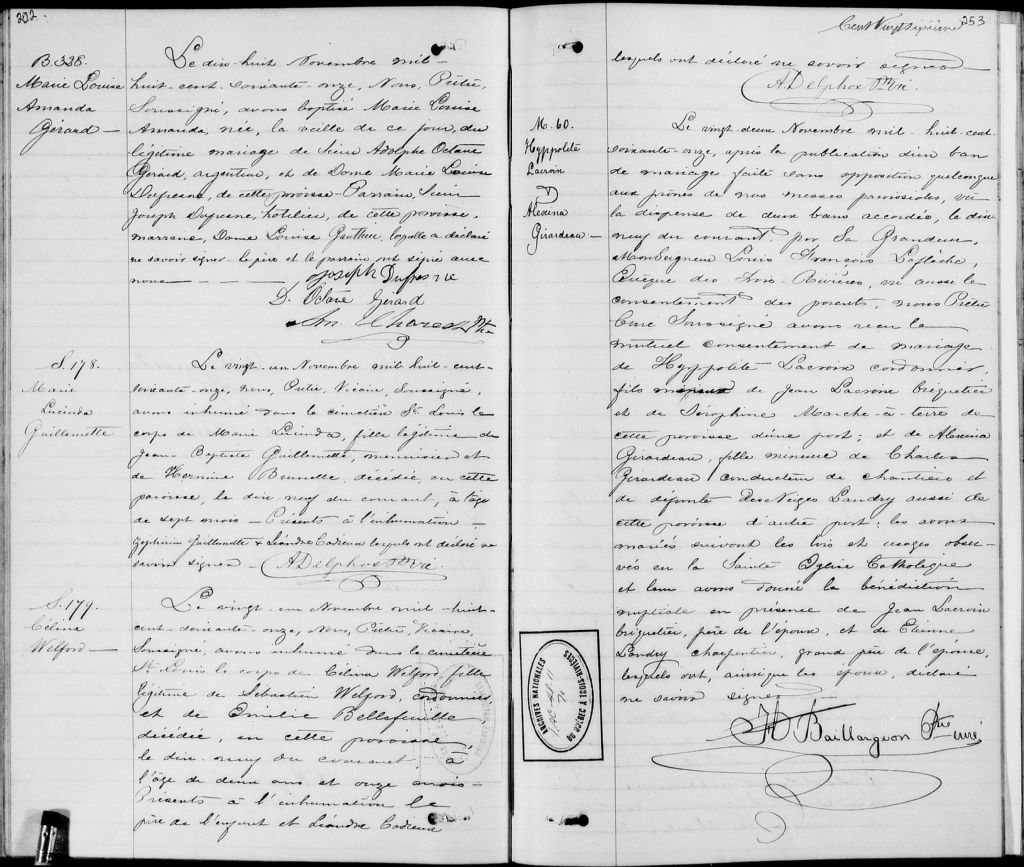 202.
B. 338.
Marie Louise
Amanda
Gérard —
Le dix-huit Novembre mil-
huit-cent-soixante-onze, Nous, Prêtre,
Soussigné, avons baptisé Marie Louise
Amanda, née, la veille de ce jour, du
légitime mariage de Sieur Adolphe Octave
Gérard, argentier, et de Dame Marie Louise
Dufresne, de cette paroisse - Parrain, Sieur
Joseph Dufresne, hôtelier, de cette paroisse,
marraine, Dame Louise Gauthier, laquelle a déclaré
ne savoir signer - le père et le parrain ont signé avec
nous — — — Joseph Dufresne
D. Octave Gérard
Charest Ptre
S. 178.
Marie
Lucinda
Guillemette
Le vingt-un Novembre mil-huit-cent-
soixante-onze, nous, Prêtre, Vicaire, Soussigné,
avons inhumé dans le cimetière St. Louis le
corps de Marie Lucinda, fille légitime de
Jean-Baptiste Guillemette, menuisier et
de Hermine Brunelle, décédée, en cette
paroisse, le dix-neuf du courant, à l'âge
de sept mois — Présents à l'inhumation —
Guillemette & Léandre Cadieux lesquels ont déclaré ne
savoir signer — ADelphos Ptre Vic.
S. 179.
Célina
Welford —
Le vingt-un Novembre mil-huit-
cent-soixante-onze, Nous, Prêtre, Vicaire,
Soussigné, avons inhumé dans le cimetière
St-Louis le corps de Célina Welford, fille
légitime de Sébastien Welford, cordonnier,
et de Emilie Bellefeuille,
décédée, en cette paroisse
le dix-neuf du courant, à
l'âge de deux ans et onze mois -
Présents à l'inhumation le
père de l'enfant et Léandre Cadieux
253
Cent Vingt Sixième
lesquels ont déclaré ne savoir signer —
ADelphos Ptre Vic.
M. 60.
Hyppolite
Lacroix
&
Alexina
Girardeau —
Le vingt-deux Novembre mil-huit-cent-
soixante-onze, après la publication d'un ban
de mariage faite sans opposition quelconque
aux prônes de nos messes paroissiales, vu
la dispense de deux bans accordée, le dix
neuf du courant par Sa Grandeur,
Monseigneur Louis François Laflèche,
Evêque des Trois-Rivières, vu aussi le
consentement des parents, nous Prêtre
Curé Soussigné avons reçu le
mutuel consentement de mariage
de Hyppolite Lacroix cordonnier,
fils mineur de Jean Lacroix briquetier
et de Séraphine Marche-à-terre de
cette paroisse d'une part; et de Alexina
Girardeau, fille mineure de Charles
Girardeau conducteur de chantiers et
de défunte DesNeiges Landry aussi de
cette paroisse d'autre part; les avons
mariés suivant les lois et usages obser-
vés en la Sainte Eglise Catholique
et leur avons donné la bénédiction
nuptiale en présence de Jean Lacroix
briquetier, père de l'époux, et de Etienne
Landry charpentier, grand père de l'épouse,
lesquels ont, ainsi que les époux, déclaré
ne savoir signer
Baillargeon Ptre Curé
ARCHIVES NATIONALES
DU QUÉBEC À TROIS-RIVIÈRES